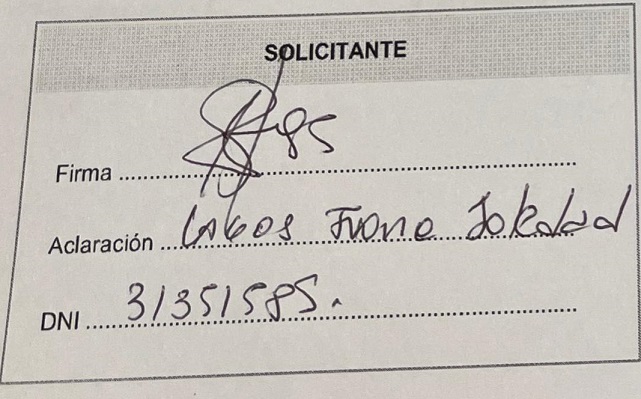 SOLICITANTE
Firma
Aclaración Lagos Ivone Soledad
DNI 31351585.